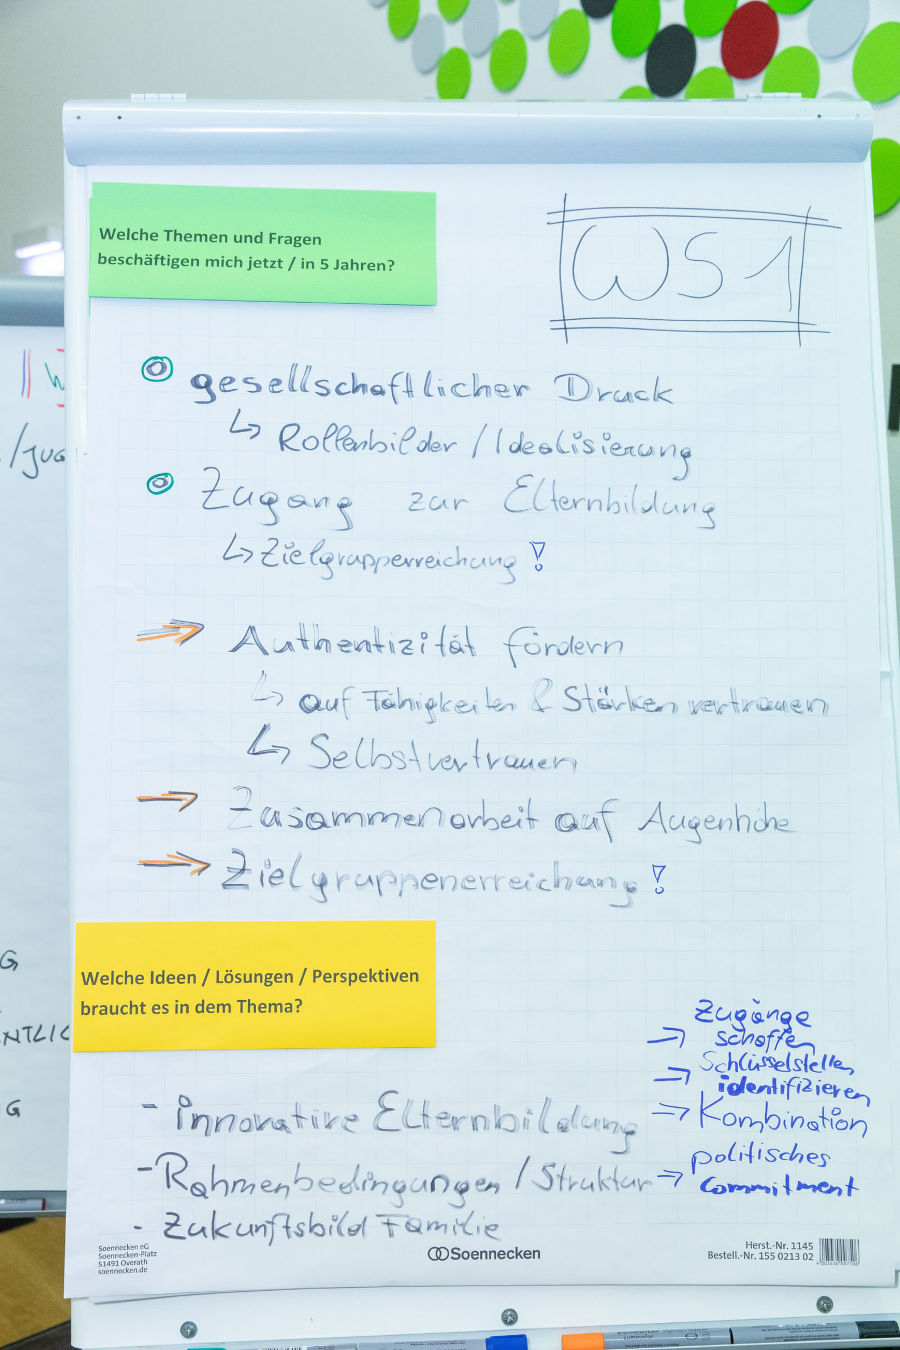 Welche Themen und Fragen
beschäftigen mich jetzt / in 5 Jahren?
WS1
gesellschaftlicher Druck
↳ Rollenbilder / Idealisierung
Zugang zur Elternbildung
↳ Zielgruppenreichung!
⇒ Authentizität fördern
↳ auf Fähigkeiten & Stärken vertrauen
↳ Selbstvertrauen
→ Zusammenarbeit auf Augenhöhe
⇒ Zielgruppenerreichung!
Welche Ideen / Lösungen / Perspektiven
braucht es in dem Thema?
Zugänge
→ schaffen
Schlüsselstellen
→ identifizieren
- innovative Elternbildung ⇒ Kombination
politisches
- Rahmenbedingungen / Struktur → commitment
- Zukunftsbild Familie
Soennecken eG
Soennecken-Platz
51491 Overath
soennecken.de
Soennecken
Herst.-Nr. 1145
Bestell.-Nr. 155 0213 02
/Jug
G
NTLIC
G